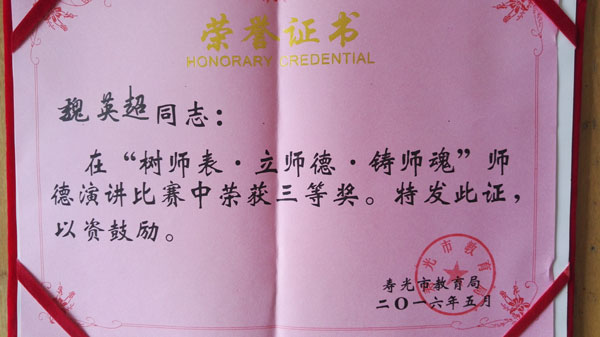 荣誉证书
HONORARY CREDENTIAL
魏英超同志：
在“树师表·立师德·铸师魂”师
德演讲比赛中荣获三等奖。特发此证，
以资鼓励。
寿光市教育局
二〇一六年五月
寿光市教育局